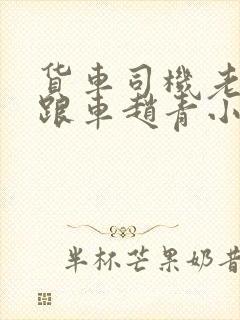 货車司機老
跟車趙青小
半杯芒果奶昔